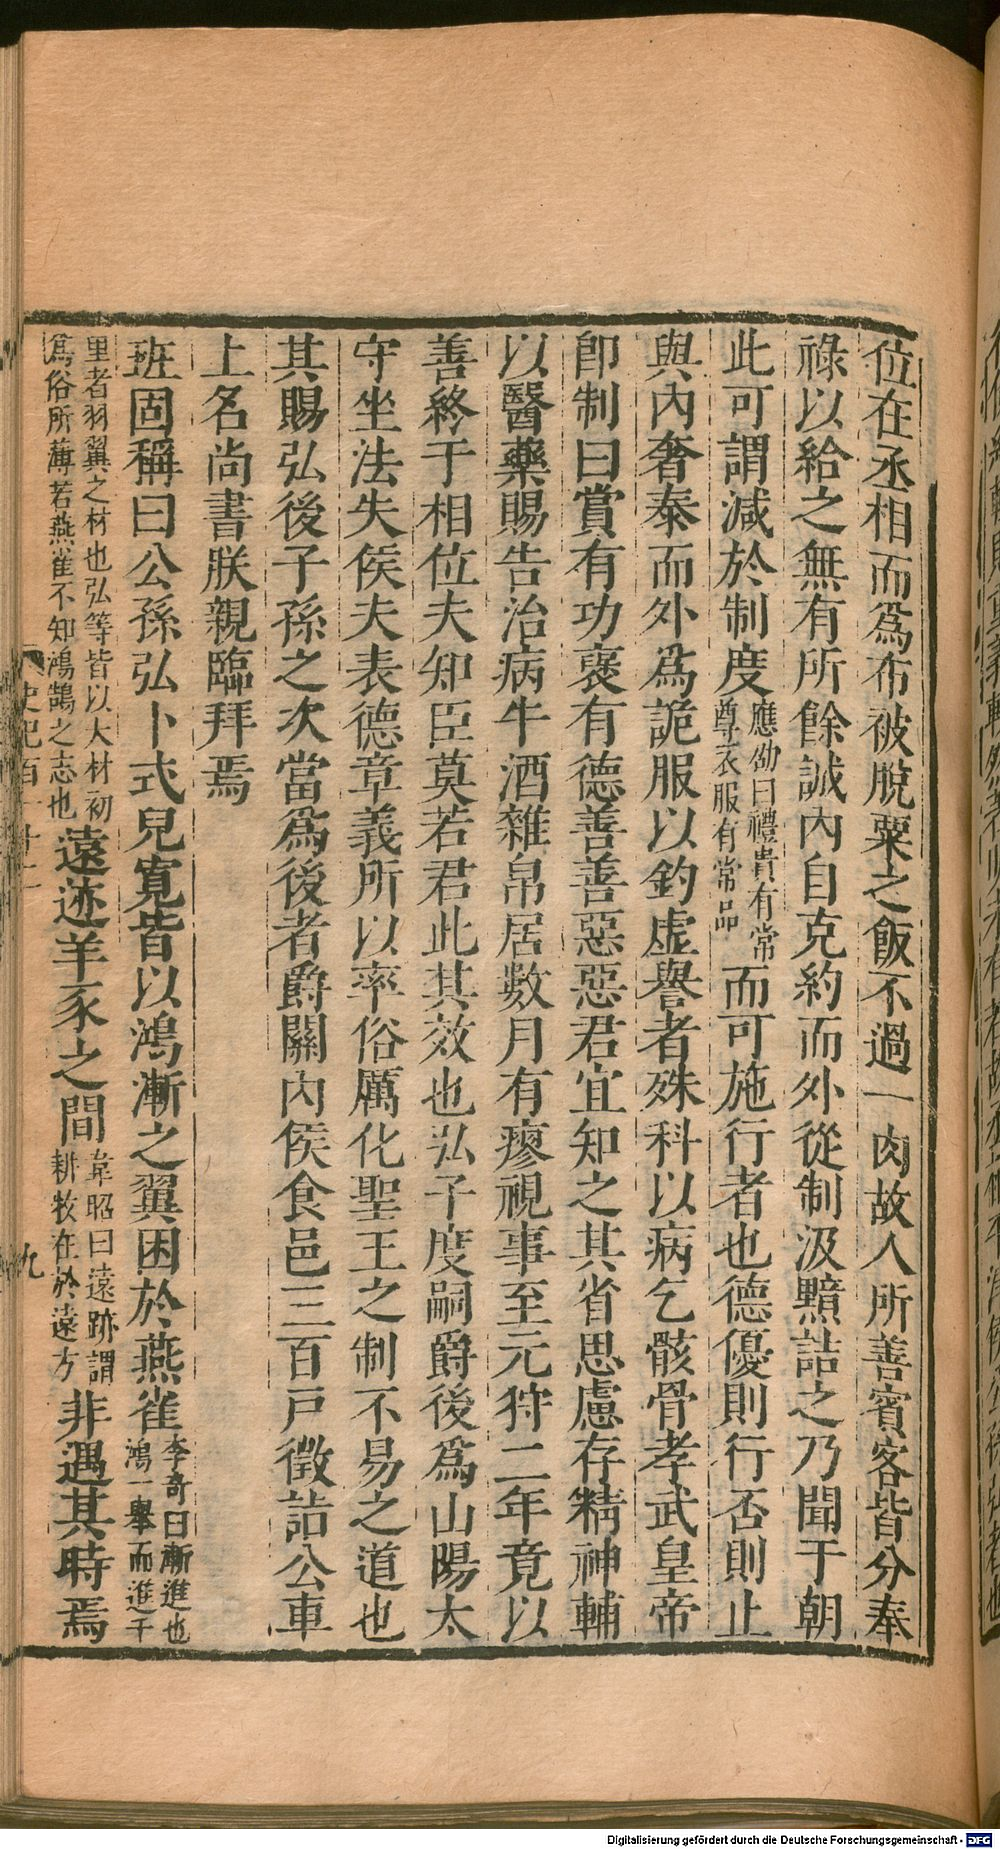 位在丞相而爲布被脫粟之飯不過一肉故人所善賓客皆分奉
祿以給之無有所餘誠內自克約而外從制汲黯詰之乃聞于朝
此可謂減於制度應劭曰禮貴有常尊衣服有常品而可施行者也德優則行否則止
與內奢泰而外爲詭服以釣虛譽者殊科以病乞骸骨孝武皇帝
卽制曰賞有功襃有德善善惡惡君宜知之其省思慮存精神輔
以醫藥賜告治病牛酒雜帛居數月有瘳視事至元狩二年竟以
善終于相位夫知臣莫若君此其效也弘子度嗣爵後爲山陽太
守坐法失侯夫表德章義所以率俗厲化聖王之制不易之道也
其賜弘後子孫之次當爲後者爵關內侯食邑三百戶徵詣公車
上名尚書朕親臨拜焉
班固稱曰公孫弘卜式兒寬皆以鴻漸之翼困於燕雀李奇曰漸進也鴻一舉而進千
里者羽翼之材也弘等皆以大材初爲俗所薄若燕雀不知鴻鵠之志也遠迹羊豕之間韋昭曰遠跡謂耕牧在於遠方非遇其時焉
史記百十二
九
Digitalisierung gefördert durch die Deutsche Forschungsgemeinschaft - DFG